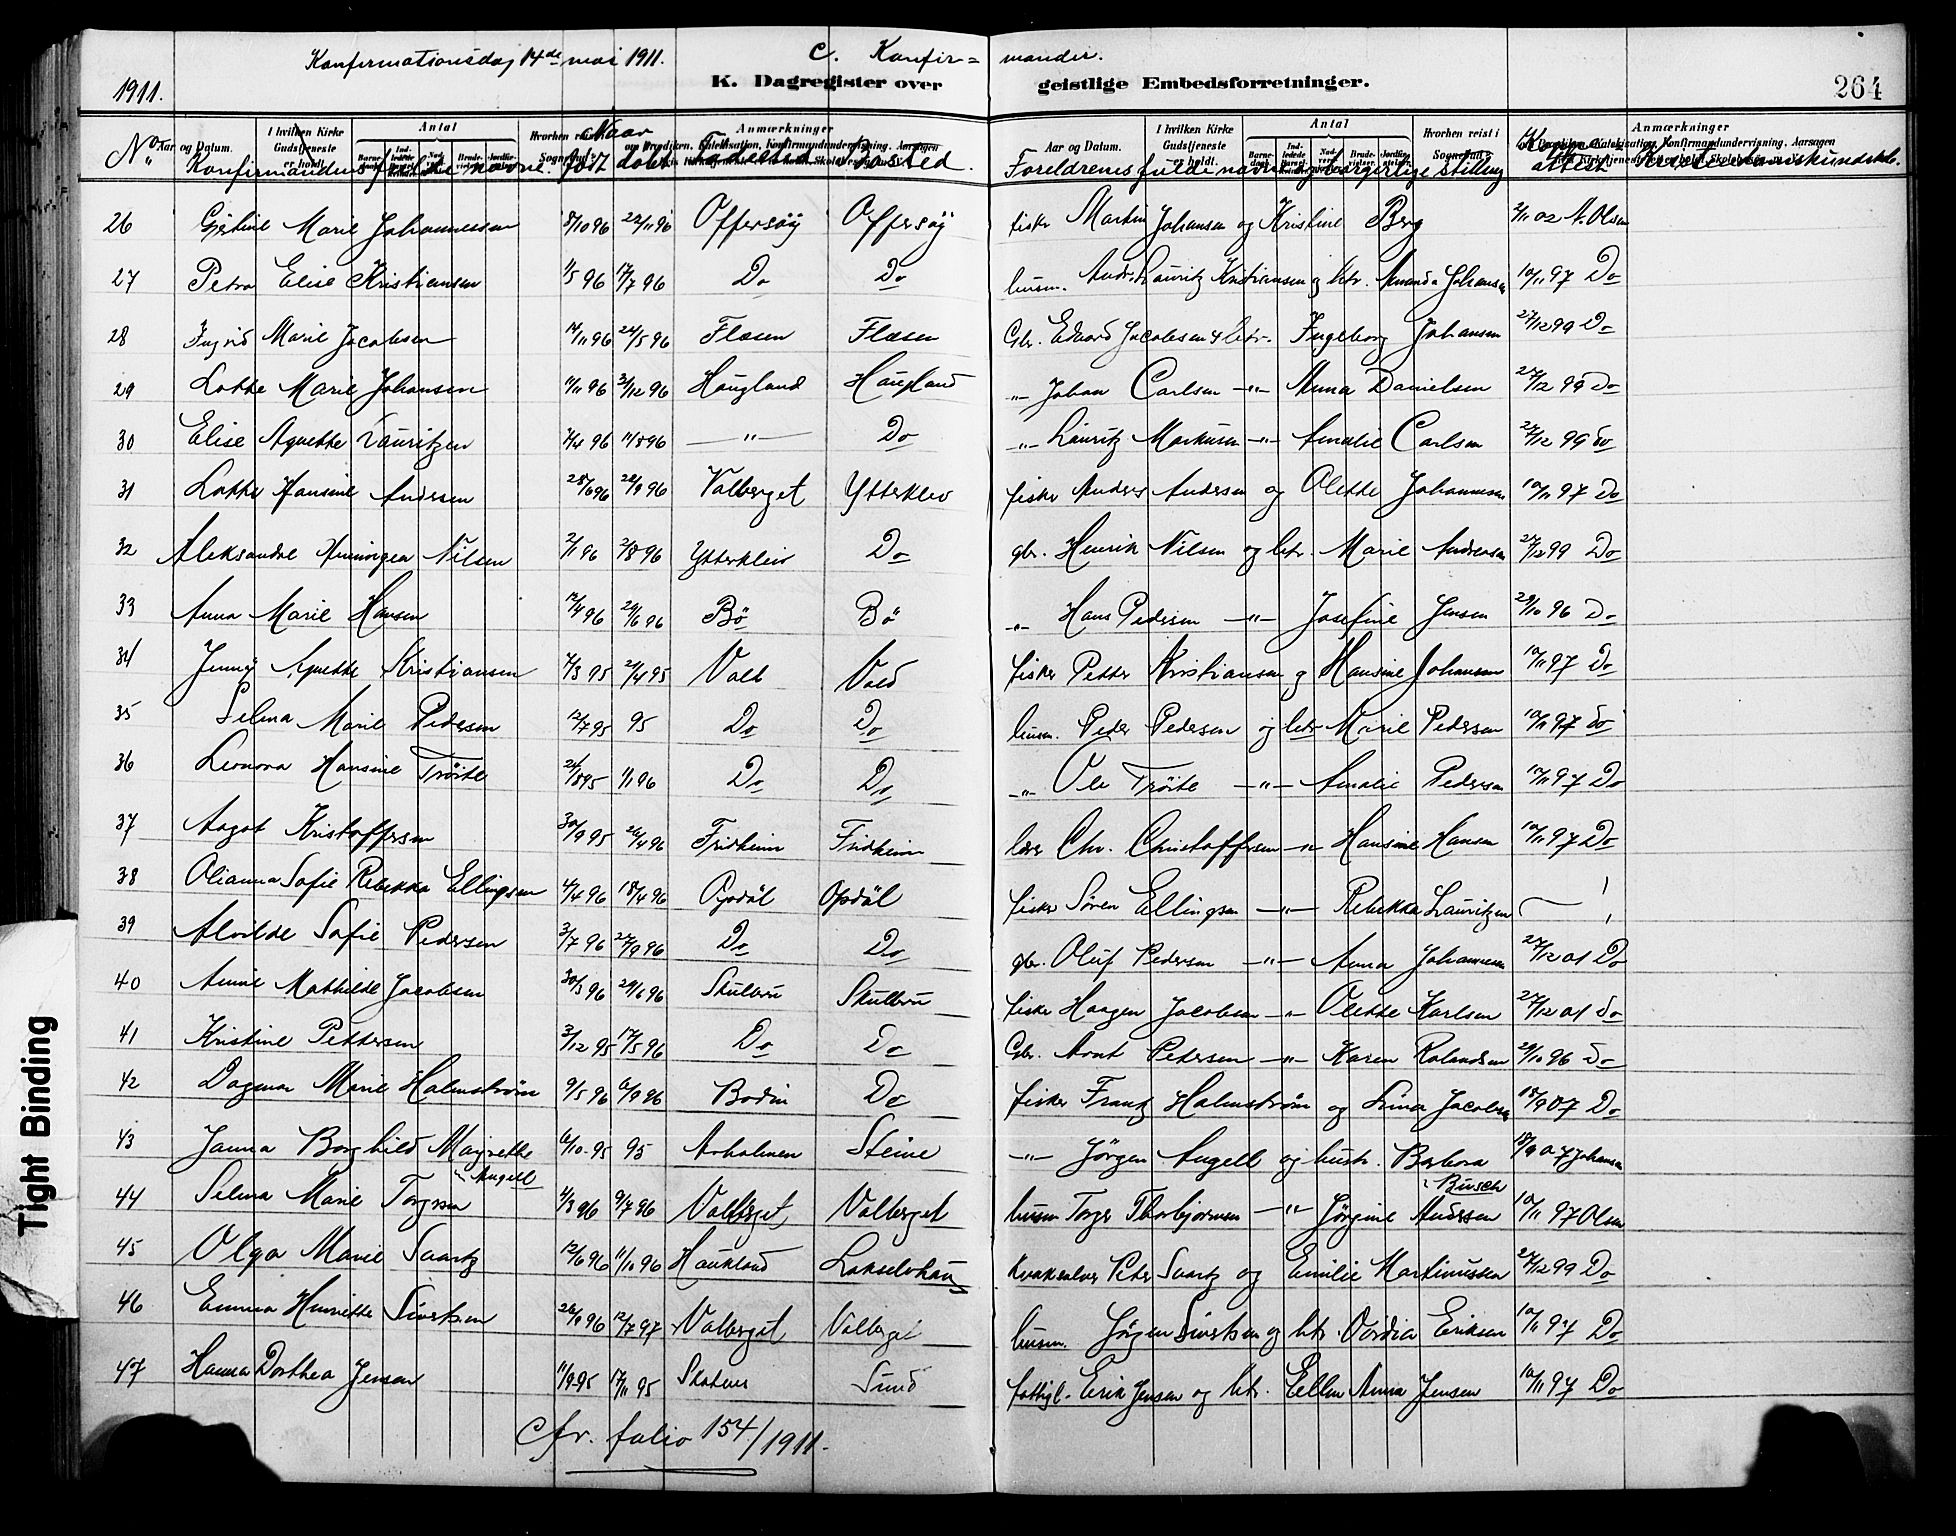 Konfirmationsdag 14de mai 1911. C. Konfir= mander.
1911. K. Dagregister over geistlige Embedsforretninger. 264
No Konfirmandens fulde navne. Født døbt Fødested Bosted. Foreldrenes fulde navne og borgerlige stilling Kop. attest
26 Gjertine Marie Johannessen 8/10 96 22/11 96 Offersøy Offersøy fisker Martin Johansen og Kristine Berg 2/11 02 N. Olsen
27 Petra Elise Kristiansen 1/5 96 17/7 96 Do Do husm. Andr. Lauritz Kristiansen og htr. Amanda Johansen 10/11 97 Do
28 Ingrid Marie Jacobsen 14/11 96 24/5 96 Flæsen Flæsen Gbr. Edvard Jacobsen & htr. Ingeborg Johansen 27/12 99 Do
29 Lotte Marie Johansen 11/11 96 31/12 96 Haugland Haugland -"- Johan Carlsen -"- Anna Danielsen 27/12 99 Do
30 Elise Agnette Lauritzen 7/4 96 11/8 96 -"- Do -"- Lauritz Markusen -"- Amalie Carlsen 27/12 99 Do
31 Lotte Hansine Andersen 28/6 96 22/9 96 Valberget Ytterklev fisker Anders Andersen og Olette Johannesen 10/11 97 Do
32 Aleksandra Nilsen 2/1 96 2/8 96 Ytterkleiv Do gbr. Henrik Nilsen og htr. Marie Andersen 27/12 99 Do
33 Anna Marie Hansen 12/4 96 24/6 96 Bö Bö -"- Hans Pedersen -"- Josefine Jensen 29/10 96 Do
34 Jenny Agnette Kristiansen 7/3 95 21/4 95 Vold Vold fisker Petter Kristiansen og Hansine Johansen 10/11 97 Do
35 Selma Marie Pedersen 12/7 95 95 Do Do husm. Peder Pedersen og htr Marie Pedersen 10/11 97 Do
36 Leonora Hansine Tröite 24/8 95 1/1 96 Do Do -"- Ole Tröite -"- Amalie Pedersen 10/11 97 Do
37 Aagot Kristoffersen 30/9 95 26/4 96 Fridheim Fridheim lærer Chr. Christoffersen -"- Hansine Hansen 10/11 97 Do
38 Olianna Sofie Rebekka Ellingsen 4/4 96 18/4 96 Opdøl Opdøl fisker Sören Ellingsen -"- Rebekka Lauritzen
39 Alvilde Sofie Pedersen 3/7 96 27/9 96 Do Do gbr. Oluf Pedersen -"- Anna Johannesen 27/12 01 Do
40 Annie Mathilde Jacobsen 30/3 96 29/6 96 Skulbru Skulbru fisker Haagen Jacobsen -"- Olette Karlsen 27/12 01 Do
41 Kristine Pettersen 3/12 95 17/5 96 Do Do Gbr. Arnt Petersen -"- Karen Rolandsen 29/10 96 Do
42 Dagmar Marie Halmström 9/5 96 6/9 96 Bodin Do fisker Frantz Halmström og Lina Jacobsen 18/9 07 Do
43 Janna Borghild Magrethe Angell 6/10 95 95 Arholmen Steine -"- Jörgen Angell og hustr. Barbara Busch 18/9 07 Johansen
44 Selma Marie Torgersen 4/3 96 9/7 96 Valberget Valberget husm Torger Thorbjörnsen -"- Jörgine Andersen 10/11 97 Olsen
45 Olga Marie Svartz 12/6 96 11/10 96 Haukland Lakselvhaug Kvaksalver Peter Svartz og Emilie Martinussen 27/12 99 Do
46 Emma Henriette Sivertsen 26/9 96 12/7 97 Valberget Valberget husm. Jörgen Sivertsen og htr. Oordia Eriksen 10/11 97 Do
47 Hanna Dorthea Jensen 11/9 95 17/11 95 Sund fattigl. Erik Jensen og htr. Ellen Anna Jensen 10/11 97 Do
Cfr. folio 154/1911.
Tight Binding